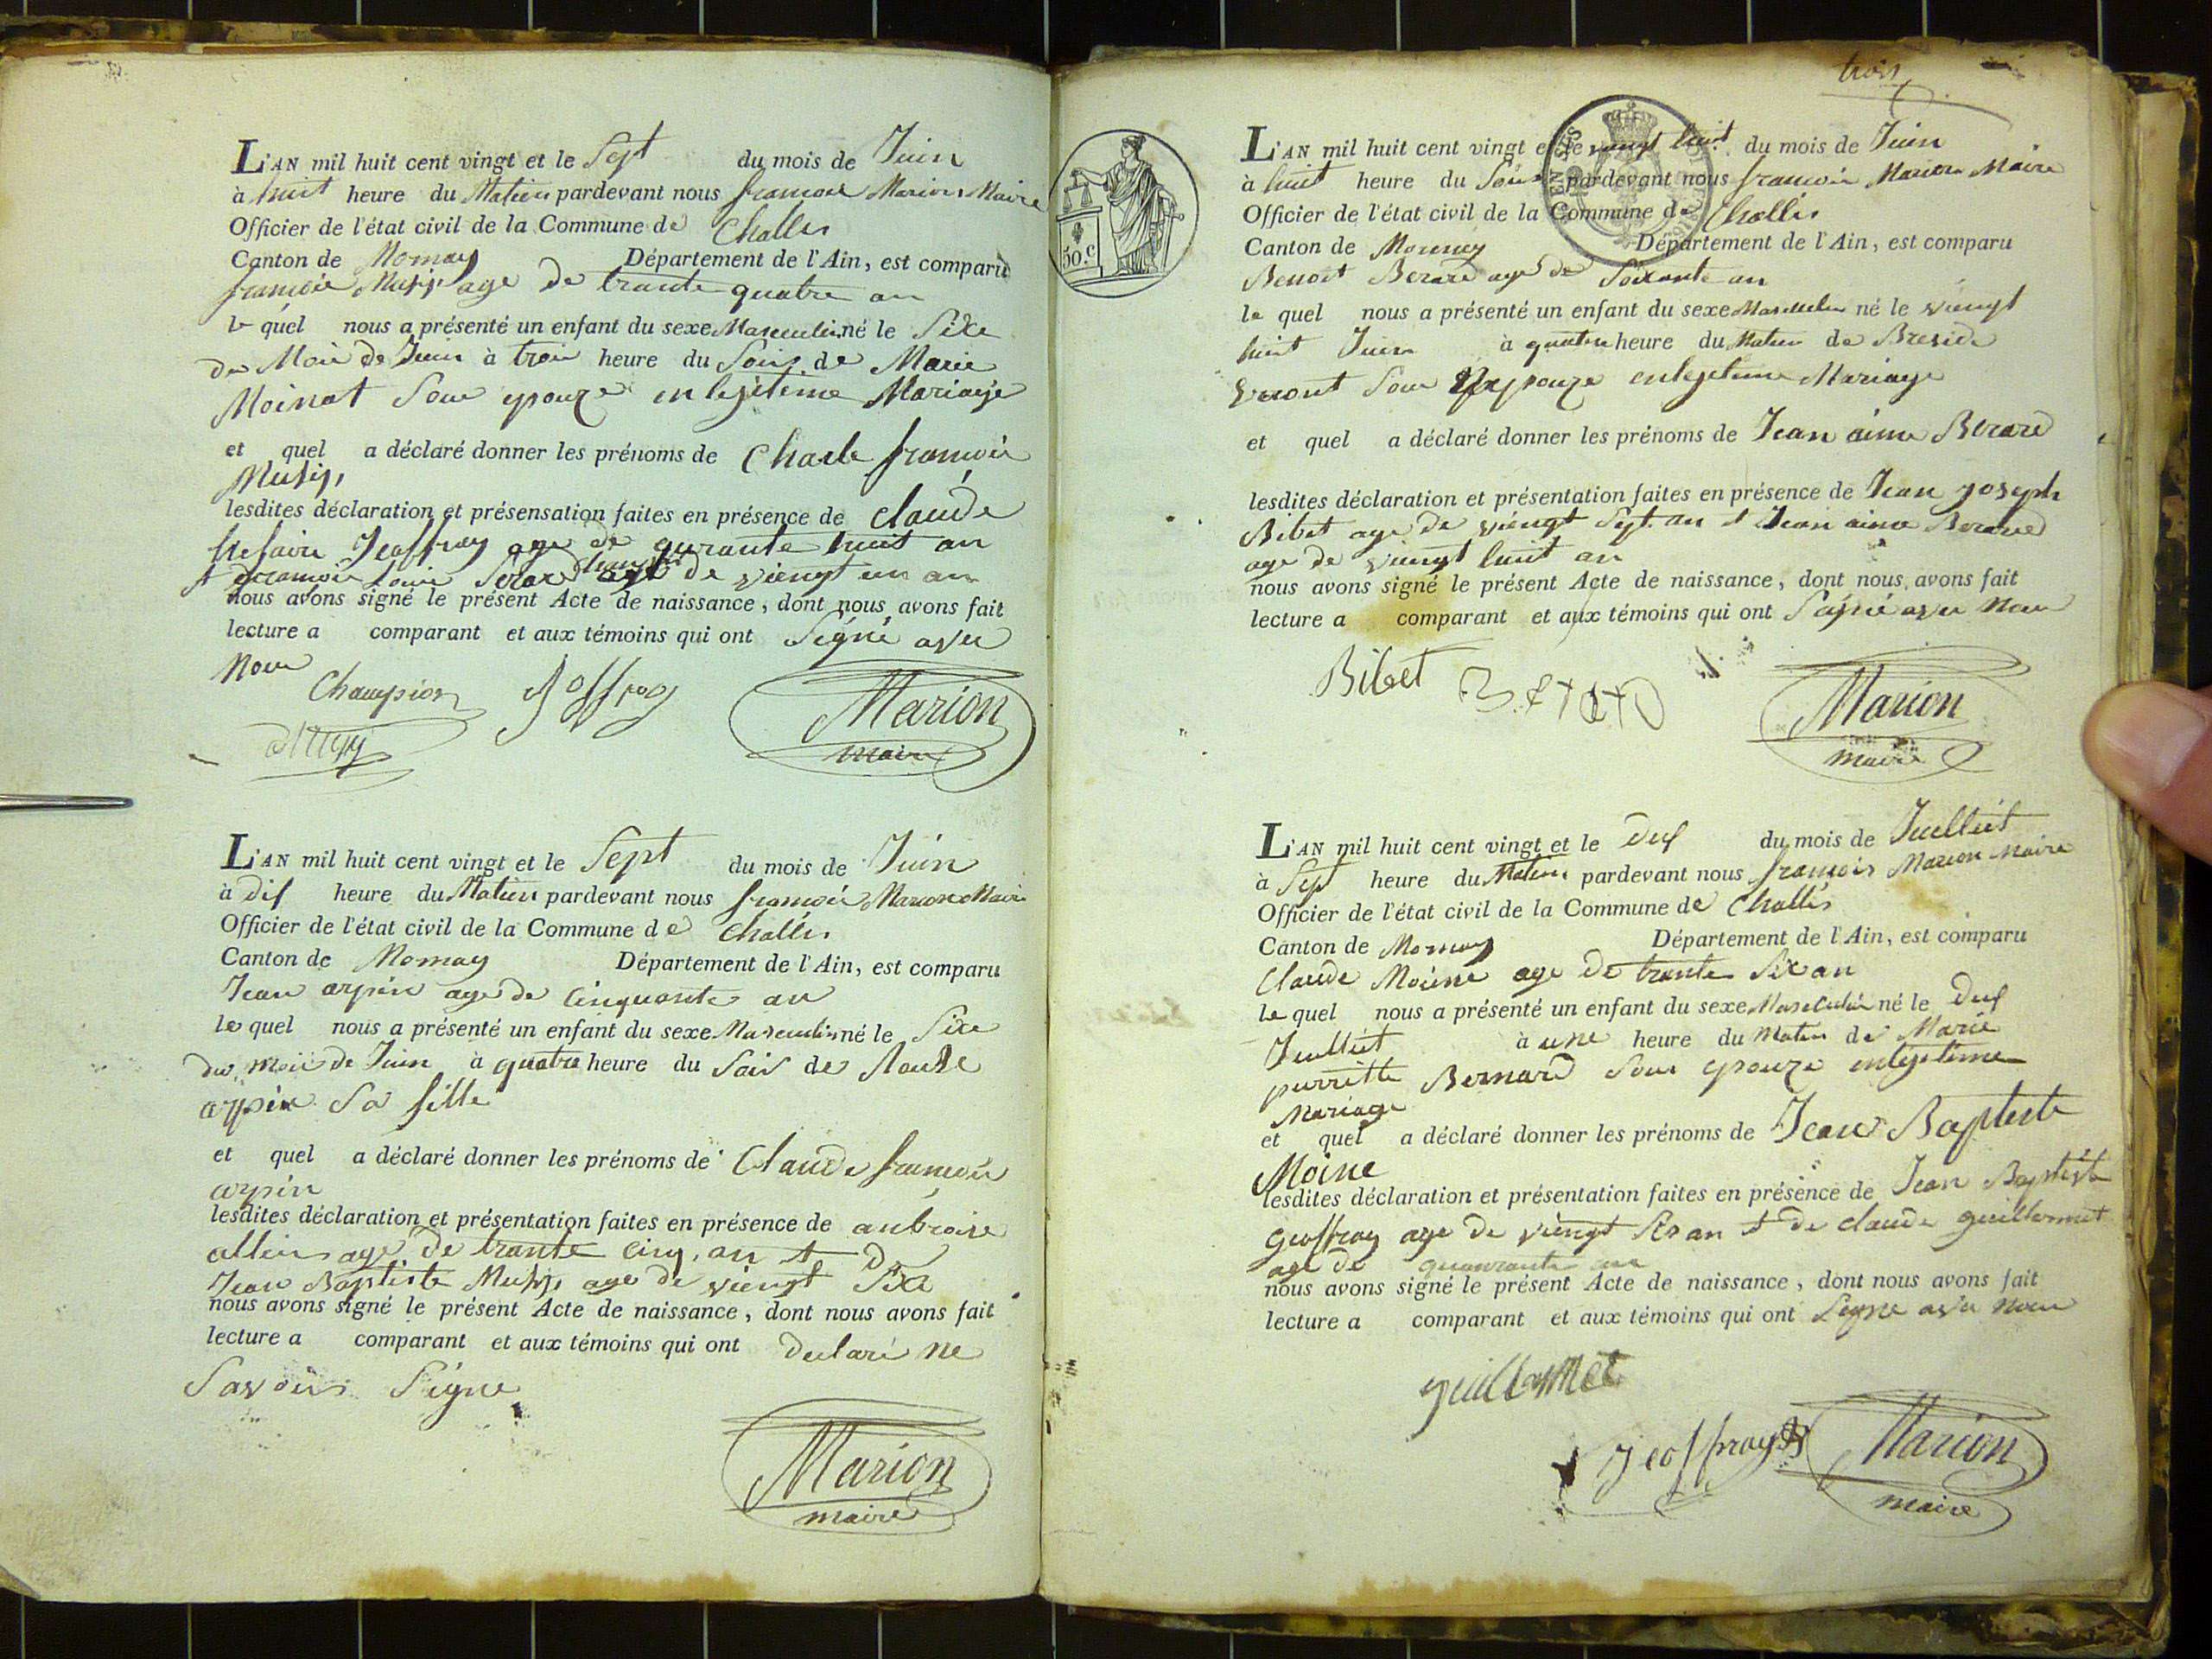 L'AN mil huit cent vingt et le Sept du mois de Juin
à huit heure du Matin pardevant nous francois Marion Maire
Officier de l'état civil de la Commune de Challes
Canton de Mornay Département de l'Ain, est comparu
francois age de trante quatre an
le quel nous a présenté un enfant du sexe Masculin né le Sixe
du Mois de Juin à trois heure du Soir de Marie
Moinat Son epouze en legiteme Mariage
et quel a déclaré donner les prénoms de Charle francois
lesdites déclaration et présensation faites en présence de Claude
Geoffray age de quarante huit an
Louis age de viengt un an
nous avons signé le présent Acte de naissance, dont nous avons fait
lecture a comparant et aux témoins qui ont Signé avec
Nous
Champion Joffroy Marion
maire
L'AN mil huit cent vingt et le Sept du mois de Juin
à dis heure du Matin pardevant nous francois Marion Maire
Officier de l'état civil de la Commune de Challes
Canton de Mornay Département de l'Ain, est comparu
Jean arpin age de Cinquante an
le quel nous a présenté un enfant du sexe Masculin né le Sixe
du Mois de Juin à quatre heure du Soir de
arpin Sa fille
et quel a déclaré donner les prénoms de Claude francois
arpin
lesdites déclaration et présentation faites en présence de
age de trante cinq an et De
Jean Baptiste age de viengt Sixe
nous avons signé le présent Acte de naissance, dont nous avons fait
lecture a comparant et aux témoins qui ont declaré ne
Savoir Signe
Marion
maire
trois
50.C
L'AN mil huit cent vingt et le vingt huit du mois de Juin
à huit heure du Soir pardevant nous francois Marion Maire
Officier de l'état civil de la Commune de Challes
Canton de Mornay Département de l'Ain, est comparu
Benoit Berard age de Soixante an
le quel nous a présenté un enfant du sexe Masculin né le viengt
huit Juin à quatre heure du Matin de
Son Epouze en legetime Mariage
et quel a déclaré donner les prénoms de Jean aime Berard
lesdites déclaration et présentation faites en présence de Jean joseph
Bibet age de viengt Sept an et Jean aime Berard
age de viengt huit an
nous avons signé le présent Acte de naissance, dont nous avons fait
lecture a comparant et aux témoins qui ont Signé avec nous
Bibet Berard Marion
maire
L'AN mil huit cent vingt et le Deus du mois de Juelliet
à Sept heure du Matin pardevant nous francois Marion Maire
Officier de l'état civil de la Commune de Challes
Canton de Mornay Département de l'Ain, est comparu
Claude Moine age de trante Sixe an
le quel nous a présenté un enfant du sexe Masculin né le Deus
Juelliet à une heure du Matin de Marie
perrette Bernard Son epouze en legetime
Mariage
et quel a déclaré donner les prénoms de Jean Baptiste
Moine
lesdites déclaration et présentation faites en présence de Jean Baptiste
Geoffray age de viengt an et de Claude guillermet
age de quarante an
nous avons signé le présent Acte de naissance, dont nous avons fait
lecture a comparant et aux témoins qui ont Signe avec nous
guillermet
geoffray Marion
maire